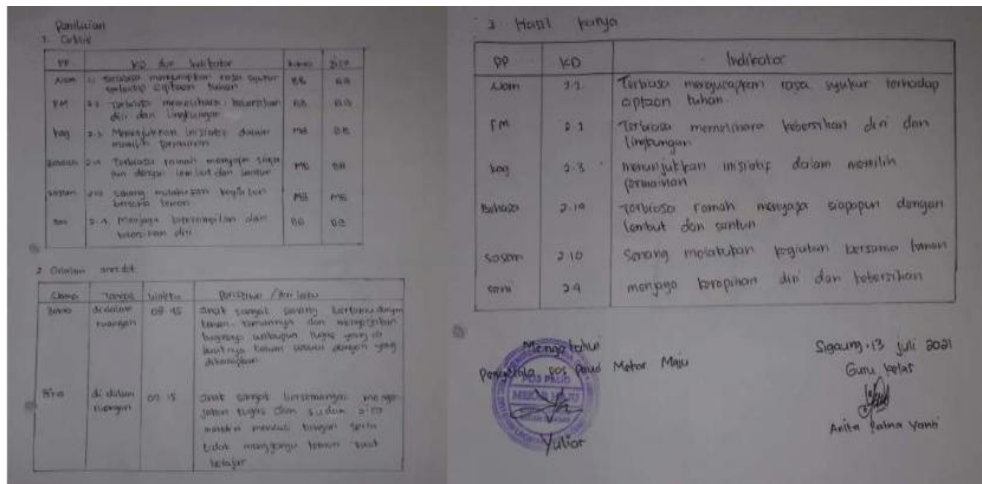 Penilaian
1. Ceklis
PP KD dan Indikator
Nam Terbiasa mengucapkan rasa syukur BB BB
terhadap ciptaan tuhan
FM 2.1 Terbiasa memelihara kebersihan BB BB
diri dan lingkungan
kog 2.3 Menunjukkan inisiatif dalam MB BB
memilih permainan
Terbiasa ramah menyapa siapa MB BB
pun dengan lembut dan santun
sosem 2.10 senang melakukan kegiatan MB MB
bersama teman
2.4 Menjaga dan BB BB
kebersihan diri
2. Catatan
tempat waktu Peristiwa / Perilaku
di dalam 09.15 anak sangat senang bertemu dengan
ruangan teman-temannya dan mengerjakan
tugasnya walaupun tugas yang di
buatnya belum sesuai dengan yang
diharapkan
di dalam 09.15 anak sangat bersemangat menge
ruangan jakan tugas dan sudah bisa
mandiri mencuci tangan serta
tidak mengganggu teman saat
belajar
3 Hasil karya
PP KD Indikator
Nam Terbiasa mengucapkan rasa syukur terhadap
ciptaan tuhan.
FM 2.1 Terbiasa memelihara kebersihan diri dan
lingkungan
kog 2.3 menunjukkan inisiatif dalam memilih
permainan
Bahasa 2.14 Terbiasa ramah menyapa siapapun dengan
lembut dan santun
sosem 2.10 Senang melakukan kegiatan bersama teman
seni 2.4 menjaga kerapihan diri dan kebersihan
Mengetahui
Pengelola pos paud Mekar Maju
POS PAUD
MEKAR MAJU
Yuliar
Sigaung, 13 juli 2021
Guru kelas
Anita Ratna Yanti